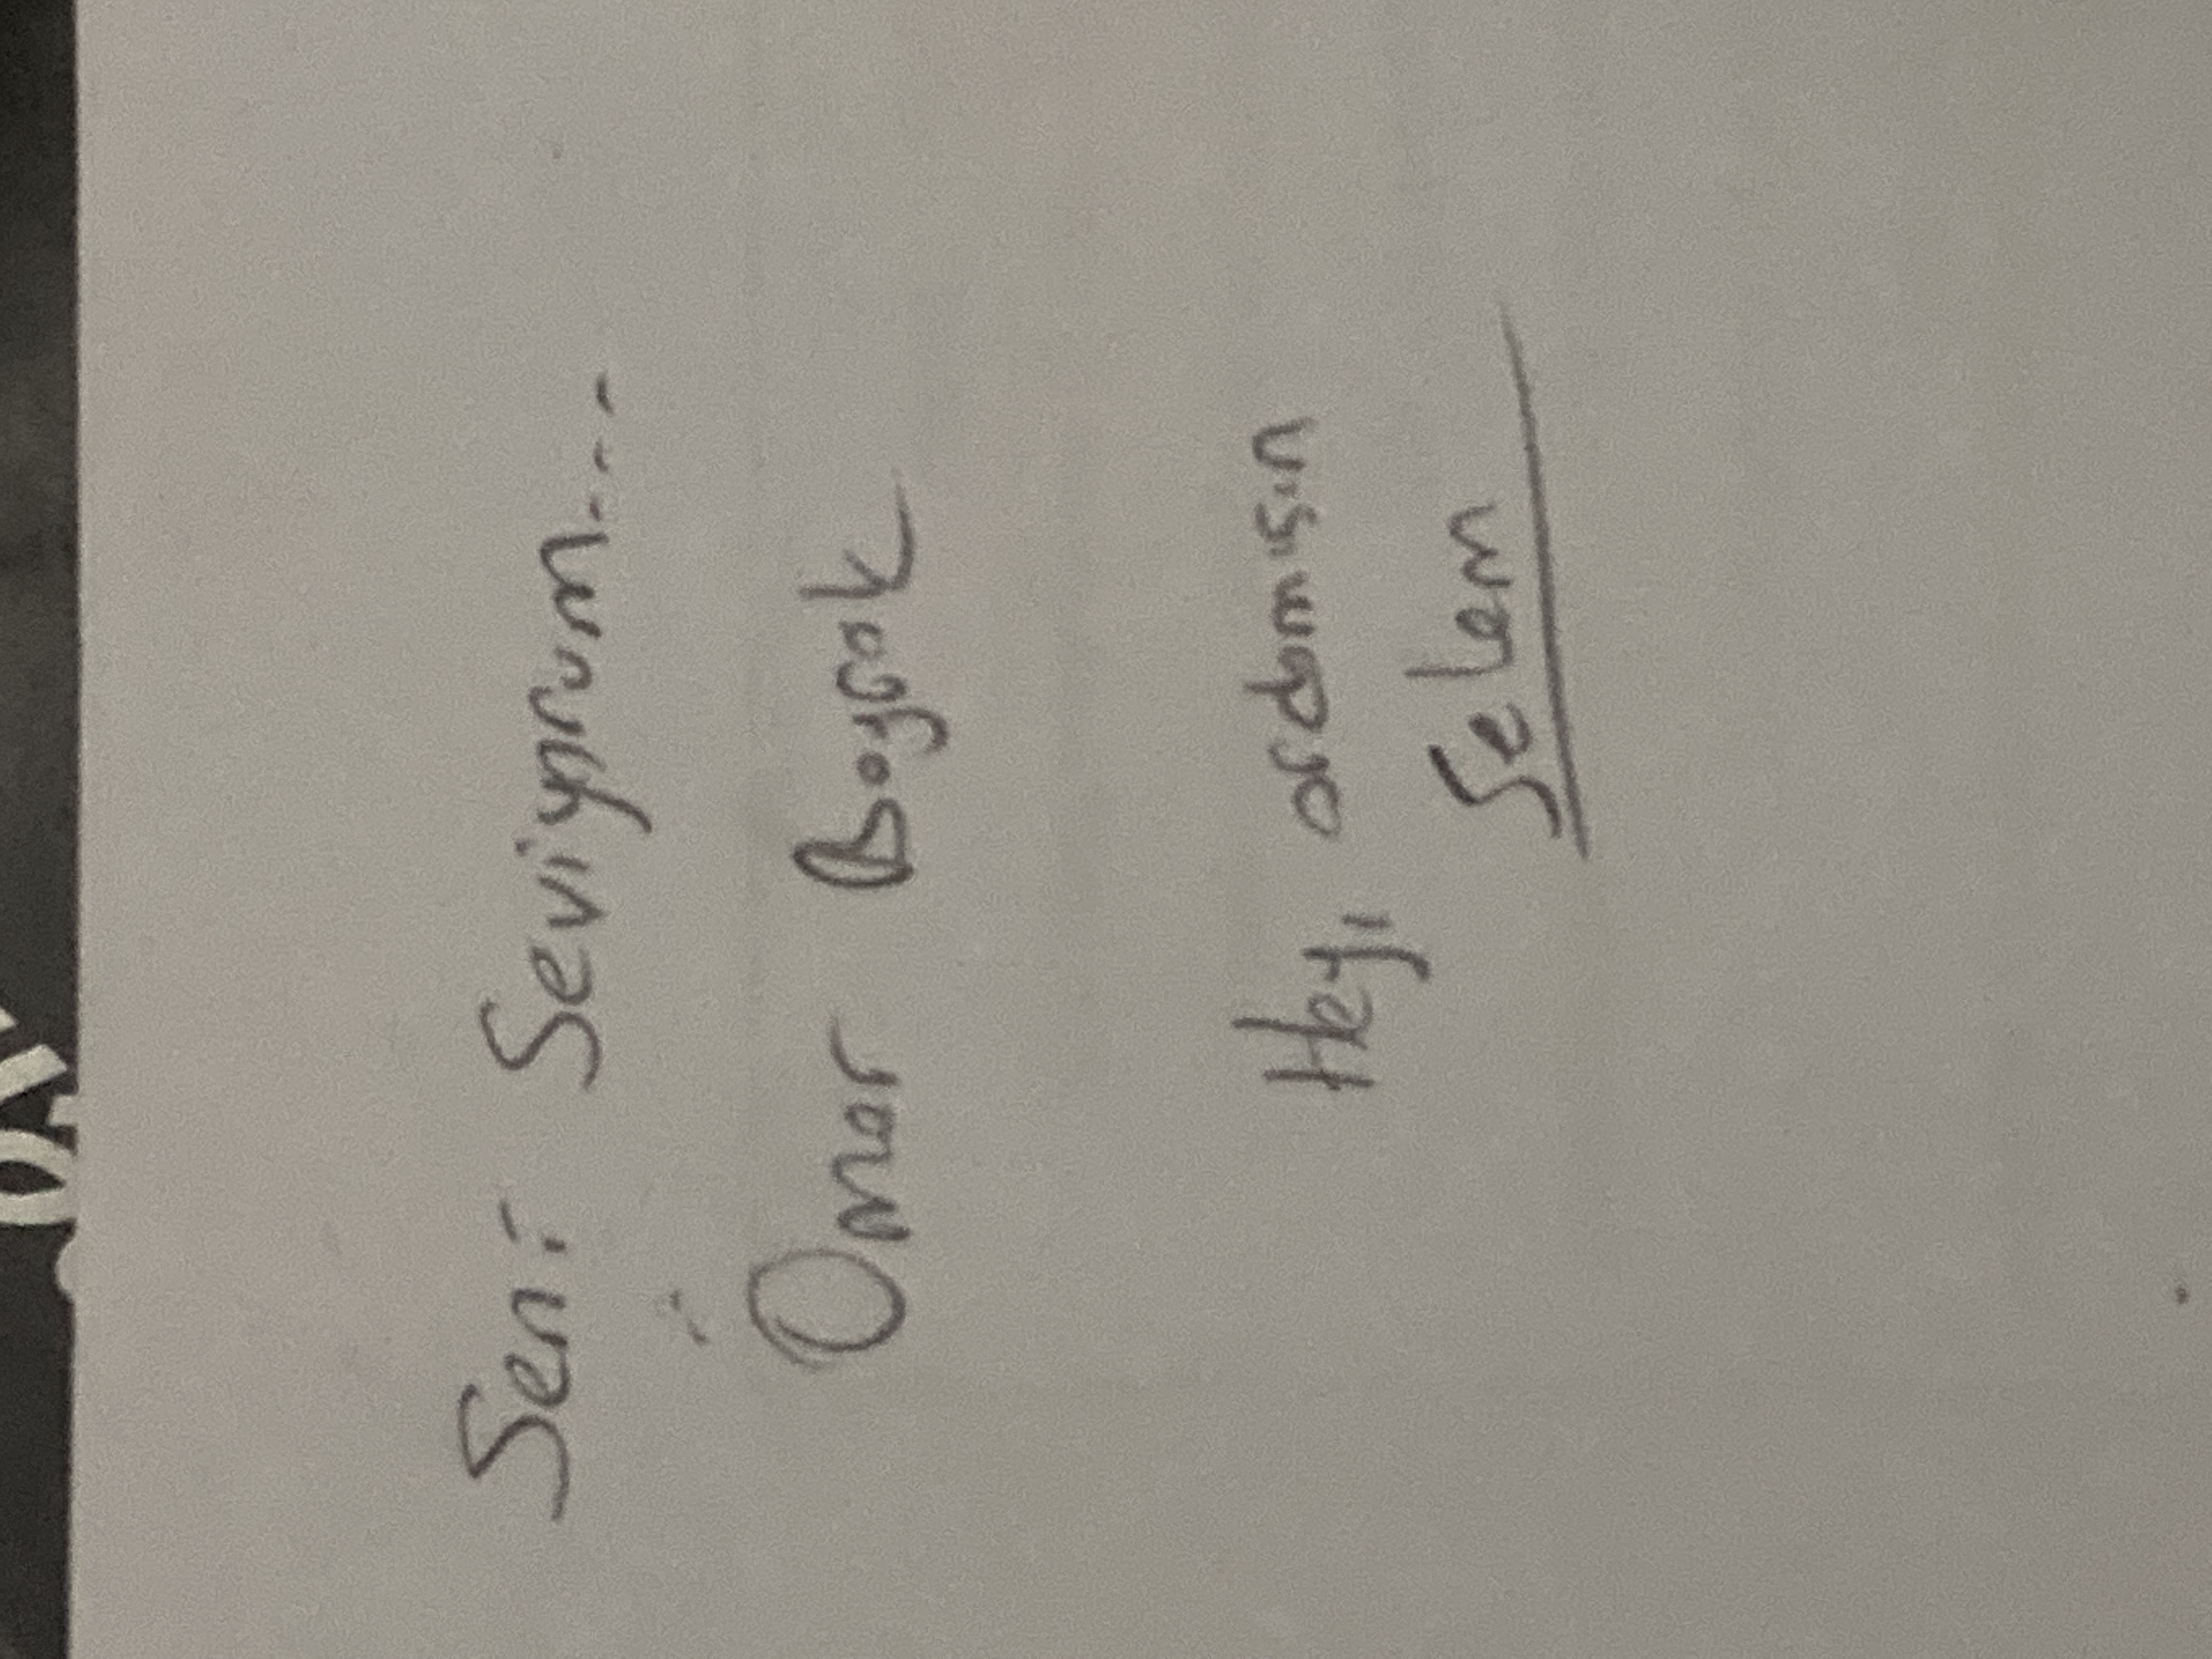 Seni Seviyorum...
Ömer Bayrak
Hey, ordamısın
Selam